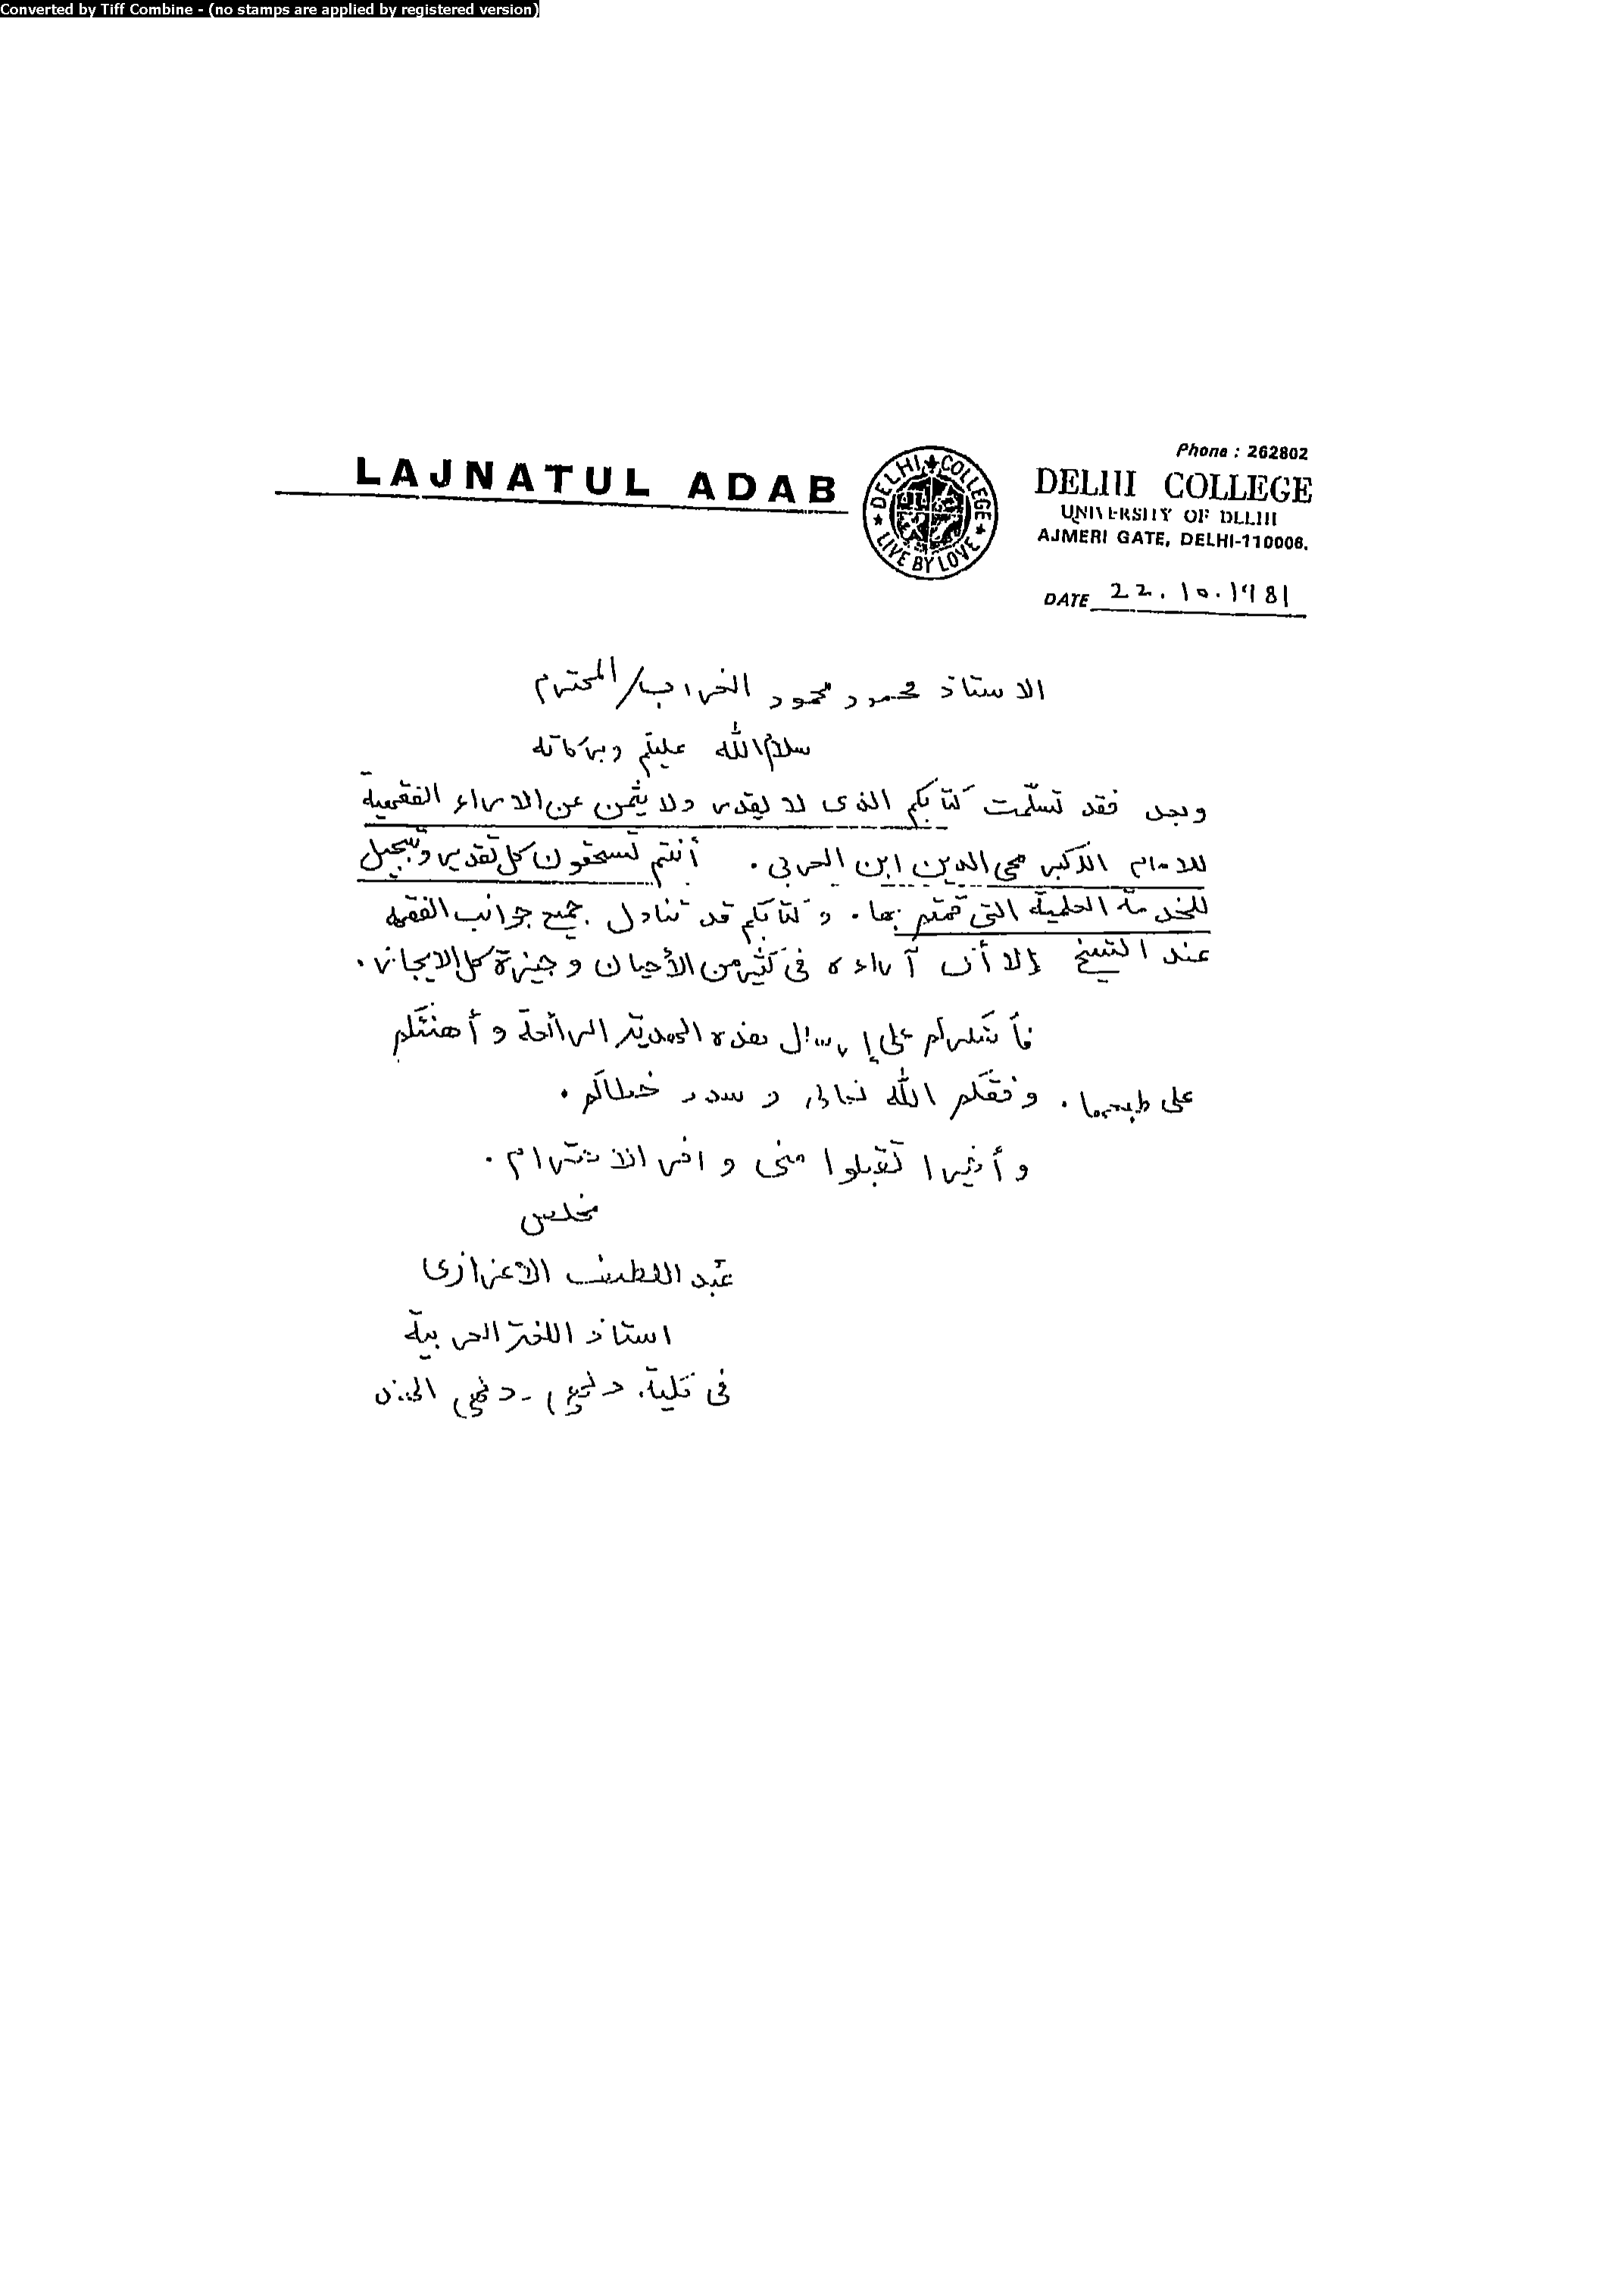 Converted by Tiff Combine - (no stamps are applied by registered version)
LAJNATUL ADAB
DELHI COLLEGE
LIVE BY LOVE
Phone : 262802
DELHI COLLEGE
UNIVERSITY OF DELHI
AJMERI GATE, DELHI-110006.
DATE 22.10.1981
الاستاذ محمود محمود الغراب/المحترم
سلام الله عليكم وبركاته
وبعد فقد تسلّمت كتابكم الذى لا يقدر ولا يثمن عن الاراء الفقهية
للامام الاكبر محى الدين ابن العربى . أنتم تستحقون كل تقدير وتبجيل
للخدمة العلمية التى قمتم بها . وكتابكم قد تناول جميع جوانب الفقه
عند الشيخ إلا أن آراءه فى كثير من الأحيان وجيزة كل الايجاز .
فأشكركم على إرسال هذه الهدية الرائعة وأهنئكم
على طبعها . وفقكم الله تعالى وسدد خطاكم .
وأخيرا تقبلوا منى وافر الاحترام .
مخلص
عبد اللطيف الاعزازى
استاذ اللغة العربية
فى كلية دلهى - دلهى الهند